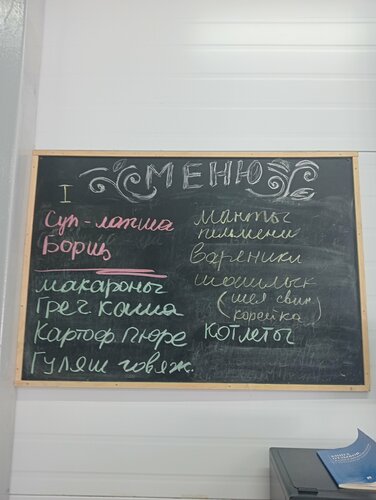 МЕНЮ
I
Суп-лапша
Борщ
макароны
Греч. каша
Картоф. Пюре
Гуляш говяж.
Манты
пельмени
Вареники
шашлык
(шея свин
корейка)
КОТЛЕТЫ